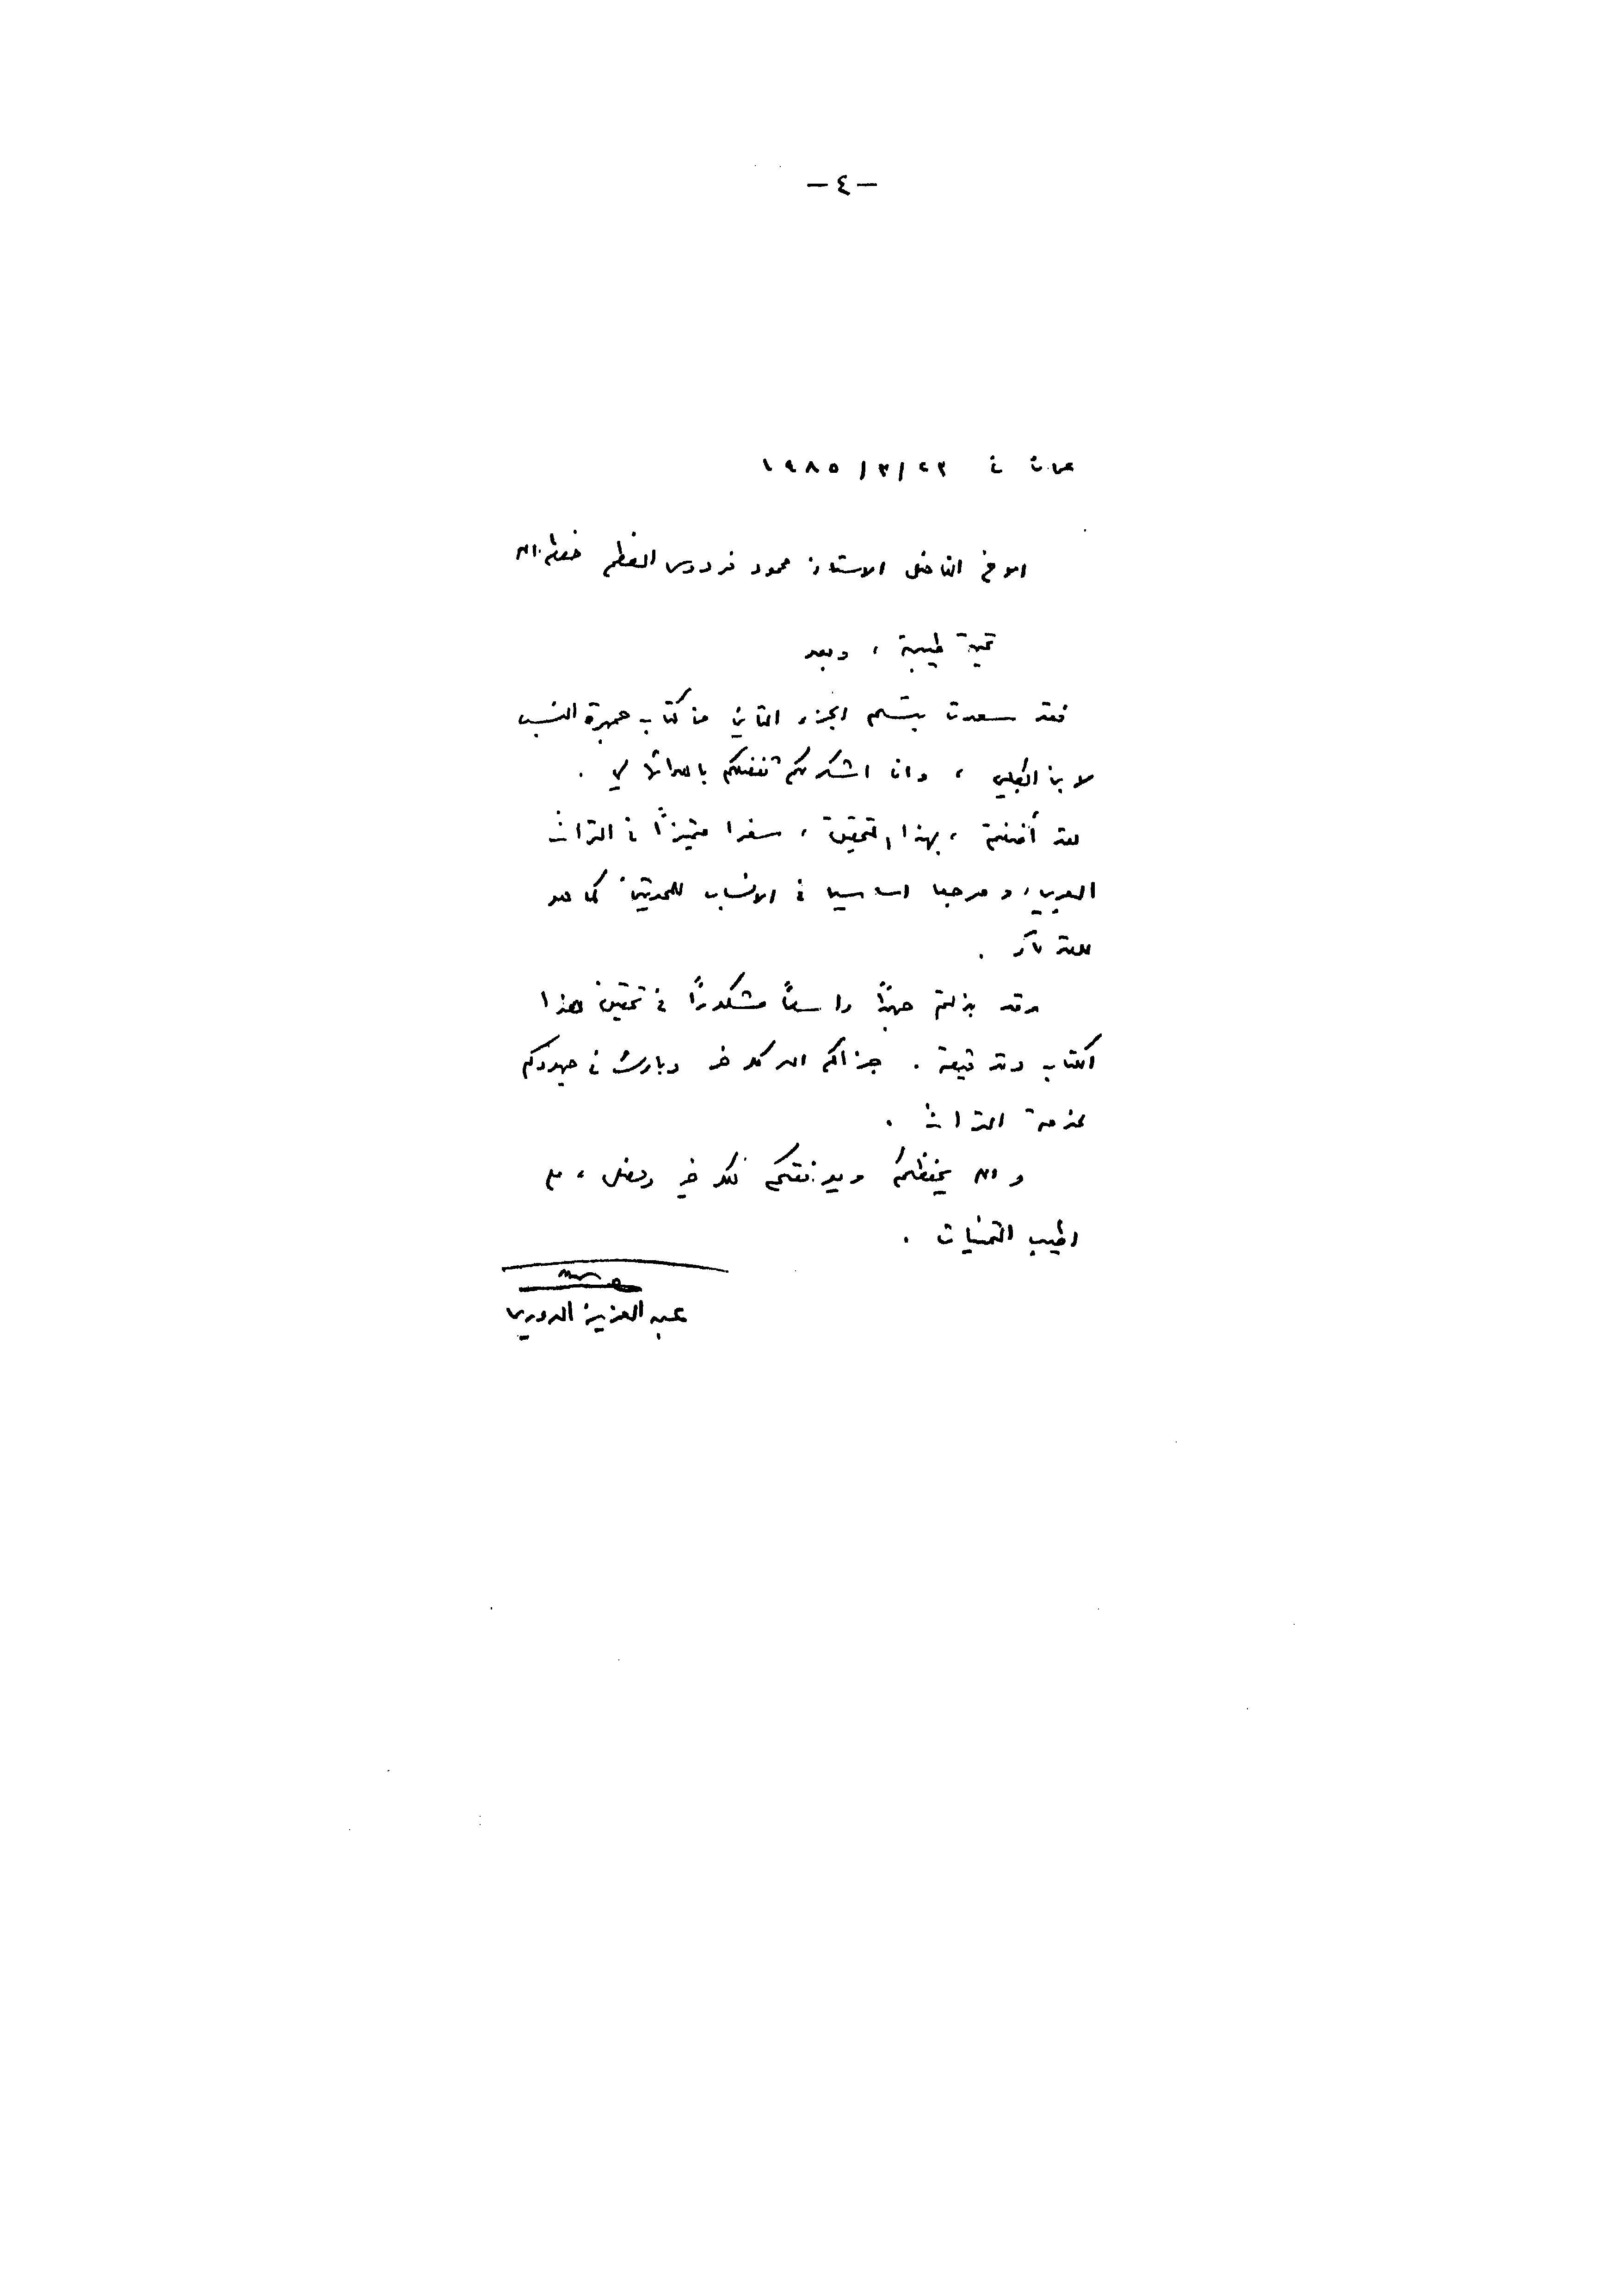 - ٤ -
عمان في ٢٣/٣/١٩٨٥
الاخ الفاضل الاستاذ محمود فردوس العظم حفظه الله
تحية طيبة ، وبعد
فقد سعدت بتسلم الجزء الثاني من كتاب جمهرة النسب
لابن الكلبي ، وانا اشكر لكم تفضلكم باهدائها لي .
لقد أضفتم ، بهذا التحقيق ، سفرا متميزاً في التراث
العربي ، ومرجعا اساسيا في الانساب للمحدثين كما هو
وقد بذلتم جهداً واسعاً مشكوراً في تحقيق هذا
الكتاب وتدقيقه . جزاكم الله كل خير وبارك في جهودكم
لخدمة التراث .
والله يحفظكم ويوفقكم لكل خير وفضل ، مع
اطيب التمنيات .
عبد العزيز الدوري